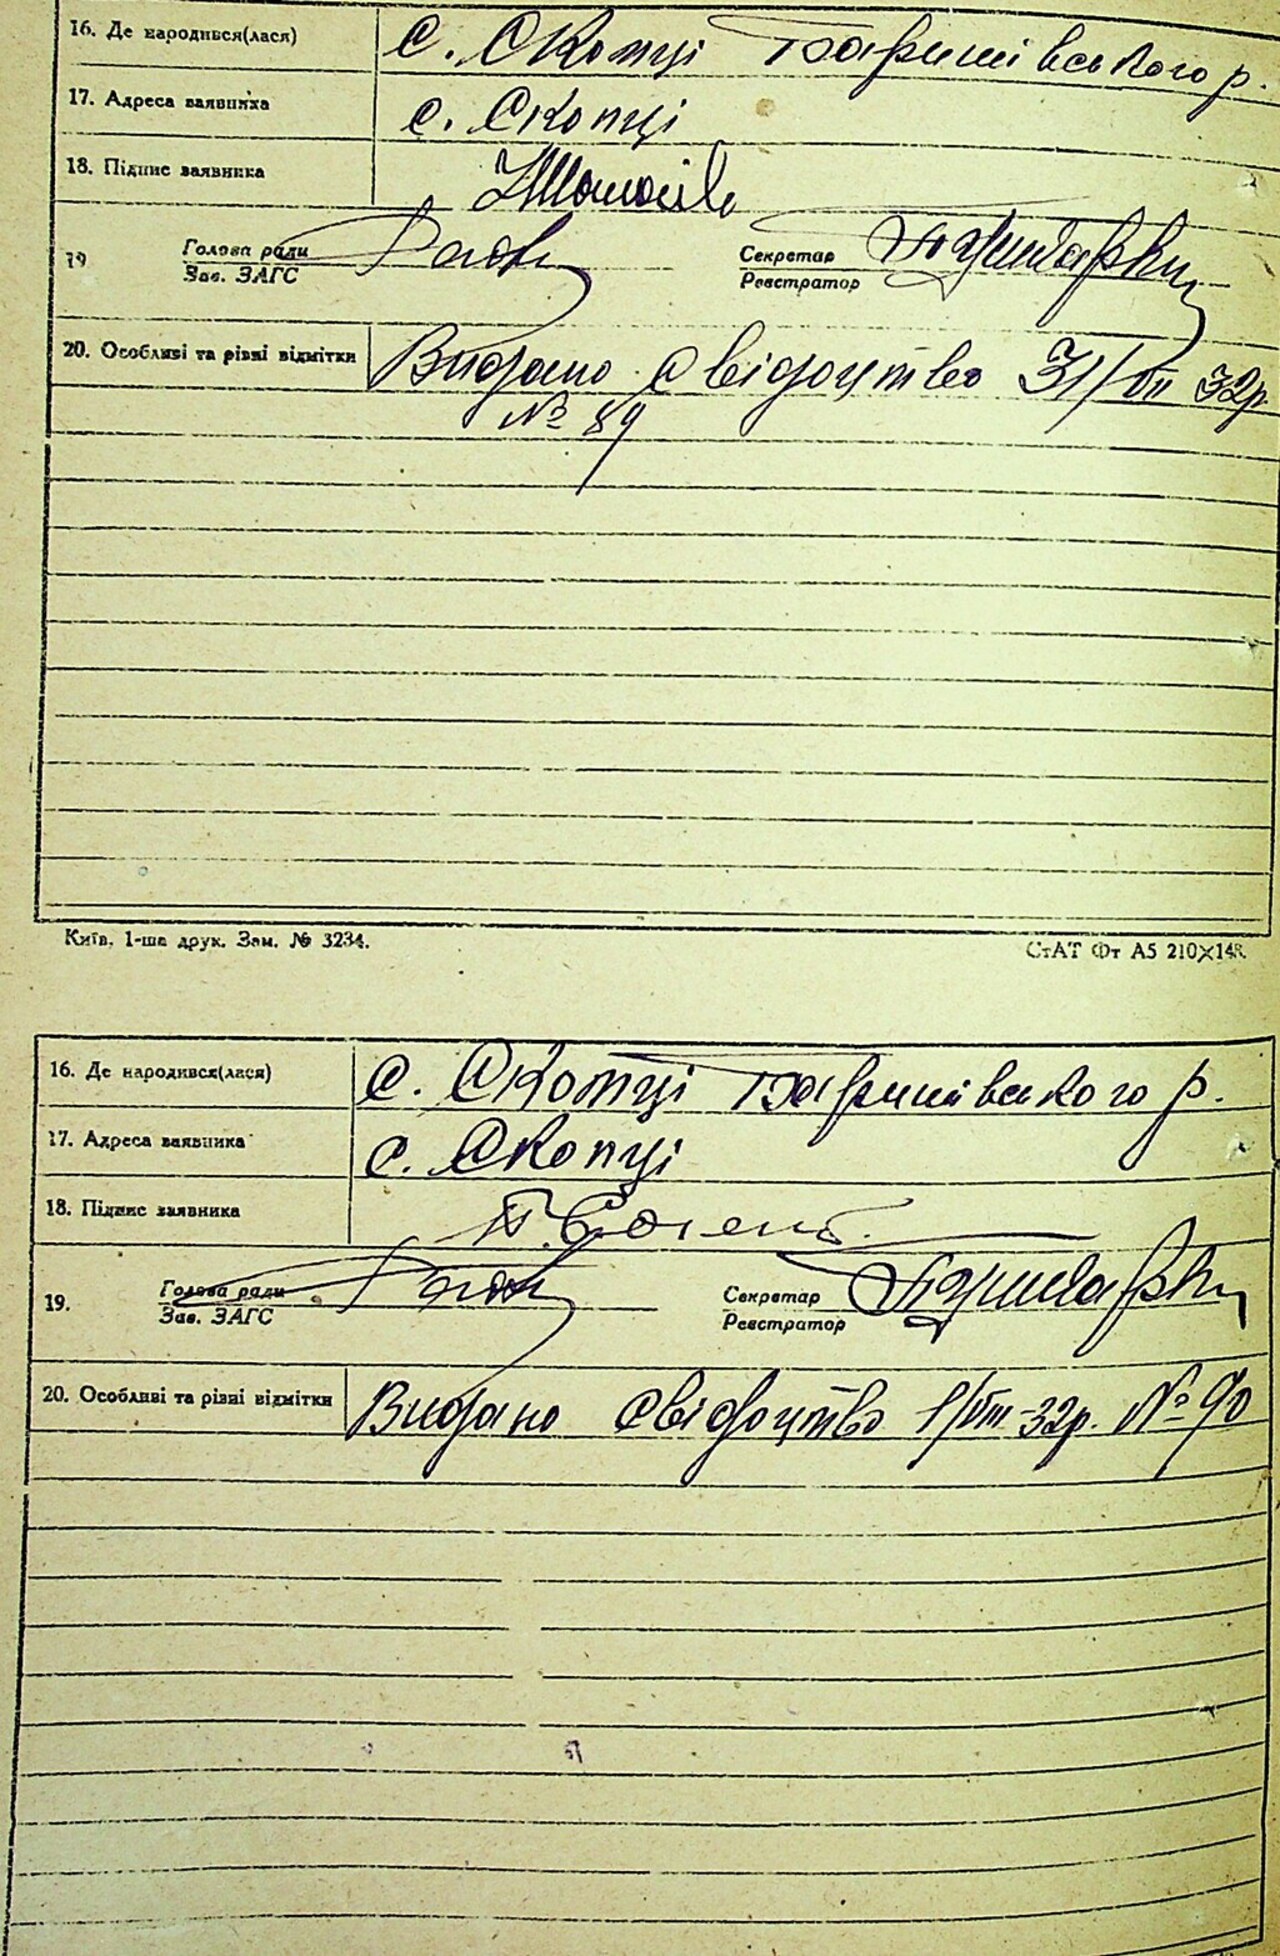 16. Де народився(лася) с. Скопці Баришівського р.
17. Адреса заявника с. Скопці
18. Підпис заявника
19 Голова ради Секретар
Зав. ЗАГС Реєстратор
20. Особливі та різні відмітки Видано свідоцтво 31/VII 32р.
№ 89
Київ. 1-ша друк. Зам. № 3234. СтАТ Фт А5 210×148.
16. Де народився(лася) с. Скопці Баришівського р.
17. Адреса заявника с. Скопці
18. Підпис заявника
19. Голова ради Секретар
Зав. ЗАГС Реєстратор
20. Особливі та різні відмітки Видано свідоцтво 1/VIII-32р. № 90